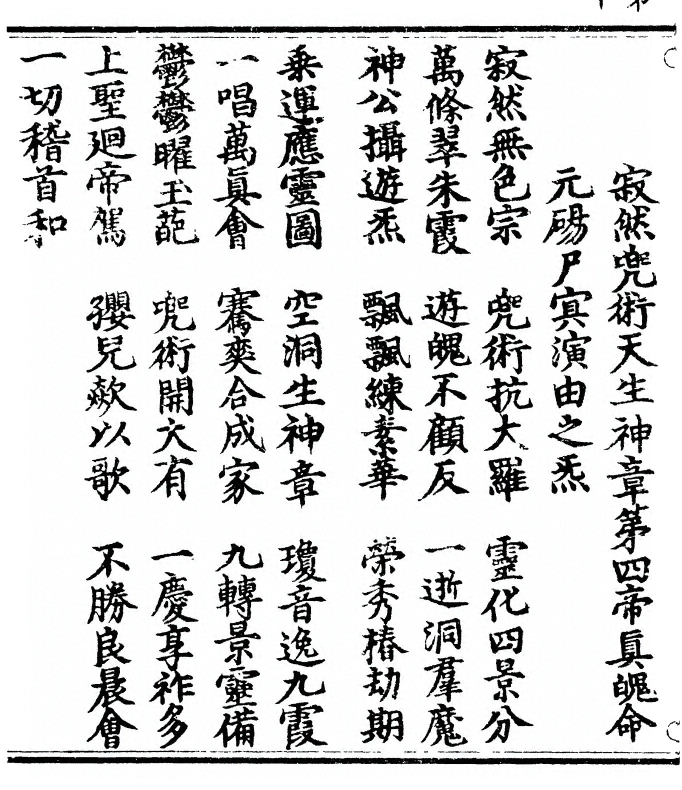 寂然兜術天生神章第四帝真魄命
元碭尸冥演由之炁
寂然無色宗 兜術抗大羅 靈化四景分
萬條翠朱霞 遊魄不顧反 一逝洞羣魔
神公攝遊炁 飄飄練素華 榮秀椿劫期
乘運應靈圖 空洞生神章 瓊音逸九霞
一唱萬真會 騫爽合成家 九轉景靈備
鬱鬱曜玉葩 兜術開大有 一慶享祚多
上聖廻帝駕 孾兒歘以歌 不勝良晨會
一切稽首和